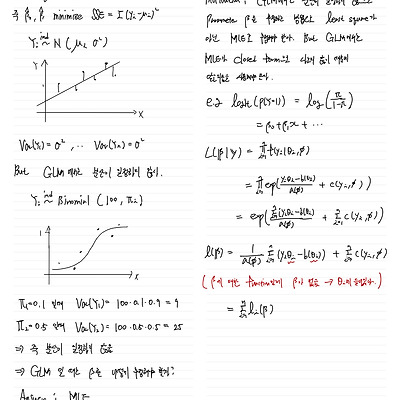 즉 β̂₀, β̂₁ minimize SSE = Σ(Yᵢ-μᵢ)²
Yᵢ ind~ N(μᵢ, σ²)
Y
X
Var(Y₁) = σ², ·· Var(Yₙ) = σ²
But GLM 에서는 분산이 일정하지 않다.
Yᵢ ind~ Binomial (100, πᵢ)
1
X
π₁=0.1 일때 Var(Y₁) = 100·0.1·0.9 = 9
π₂=0.5 일때 Var(Y₂) = 100·0.5·0.5 = 25
⇒ 즉 분산이 일정하지 않음
⇒ GLM 일 때는 β를 어떻게 추정해야 할까?
Answer : MLE
Parameter β를 구하는 방법은 least square가
아닌 MLE로 구해야 한다. But GLM에서는
MLE가 closed form으로
e.g logit(P(Y=1)) = log(π/(1-π))
= β₀ + β₁x + ···
L(β|y) = ∏ᵢ₌₁ⁿ f(yᵢ|θᵢ, φ)
= ∏ᵢ₌₁ⁿ exp((yᵢθᵢ-b(θᵢ))/a(φ) + c(yᵢ,φ))
= exp(Σᵢ₌₁ⁿ(yᵢθᵢ-b(θᵢ))/a(φ) + Σᵢ₌₁ⁿ c(yᵢ,φ))
l(β) = 1/a(φ) Σᵢ₌₁ⁿ (yᵢθᵢ-b(θᵢ)) + Σᵢ₌₁ⁿ c(yᵢ,φ)
(β에 대한 function인데 β가 없음 → θᵢ에 숨어있다.)
= Σᵢ₌₁ⁿ lᵢ(β)